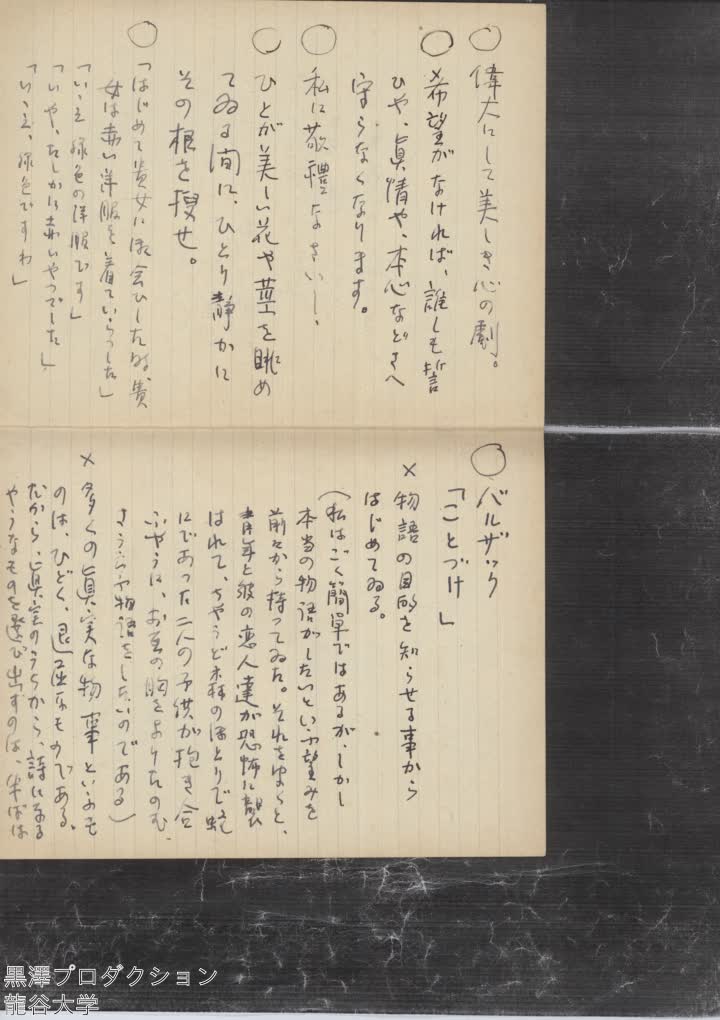 ○ 偉大にして美しき心の劇。
○ 希望がなければ、誰しも誓
ひや、眞情や、本心などさへ
守らなくなります。
○ 私に敬禮なさいし、
○ ひとが美しい花や莖を眺め
てゐる間に、ひとり静かに
その根を探せ。
○ 「はじめて貴女にお会ひした時、貴
女は赤い洋服を着ていらした」
「いゝえ 緑色の洋服です」
「いや、たしかに赤いやつでした」
「いゝえ、緑色ですわ」
○ バルザック
「ことづけ」
× 物語の目的を知らせる事から
はじめてゐる。
(私はごく簡単ではあるが、しかし
本当の物語がしたいといふ望みを
前々から持ってゐた。それをゆくと、
青年と彼の恋人達が恐怖に襲
はれて、ちやうど森のほとりで蛇
にであった二人の子供が抱き合
ふやうに、お互の胸をよりたのむ、
さういふ物語をしたいのである)
× 多くの眞実な物事といふも
のは、ひどく、退屈なものである。
だから、眞実のうちから、詩になる
やうなものを選び出すのは、半ばは
黒澤プロダクション
龍谷大学